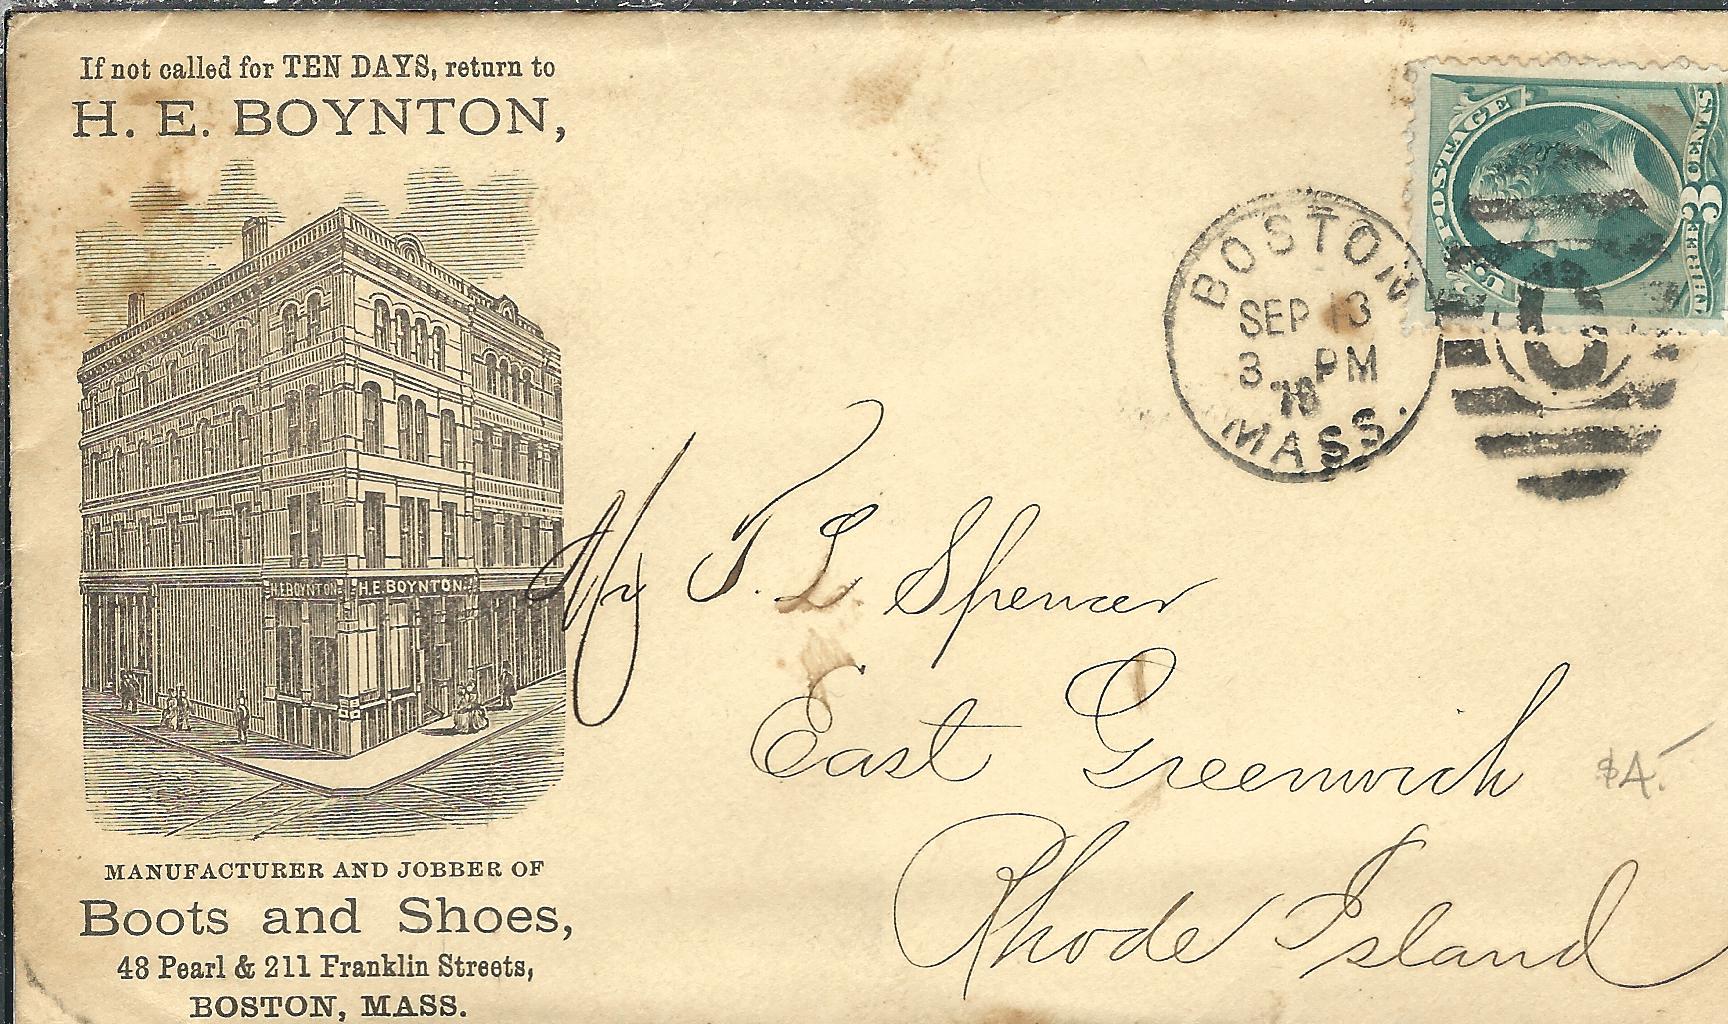 If not called for TEN DAYS, return to
H. E. BOYNTON,
H.E.BOYNTON
H.E.BOYNTON.
MANUFACTURER AND JOBBER OF
Boots and Shoes,
48 Pearl & 211 Franklin Streets,
BOSTON, MASS.
U.S. POSTAGE
THREE 3 CENTS
BOSTON
SEP 13
3 PM
MASS.
T. L. Spencer
East Greenwich
Rhode Island
$4.-